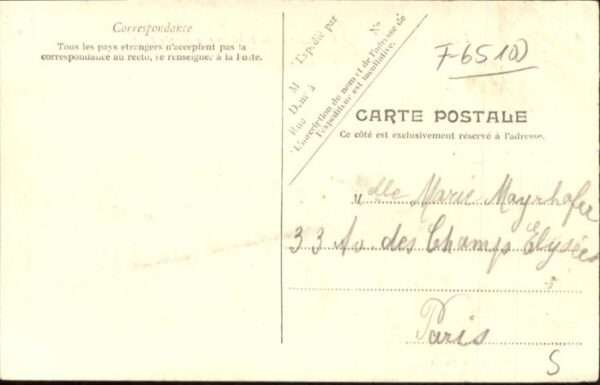 Correspondance
Tous les pays étrangers n'acceptent pas la
correspondance au recto, se renseigner à la Poste.
Expédié par
M
Dem à
Rue
No
L'inscription du nom et de l'adresse de
l'expéditeur est facultative.
F-6510)
CARTE POSTALE
Ce côté est exclusivement réservé à l'adresse.
Mlle Marie Mayrhofer
33 Av. des Champs Elysées
Paris
S